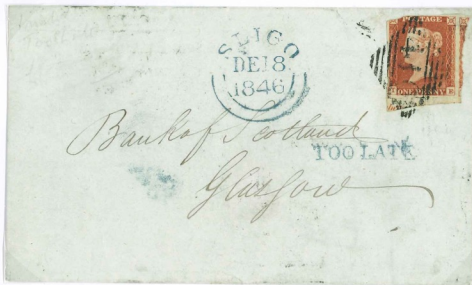 SLIGO
DE 18
1846
POSTAGE
ONE PENNY
Bank of Scotland
TOO LATE
Glasgow